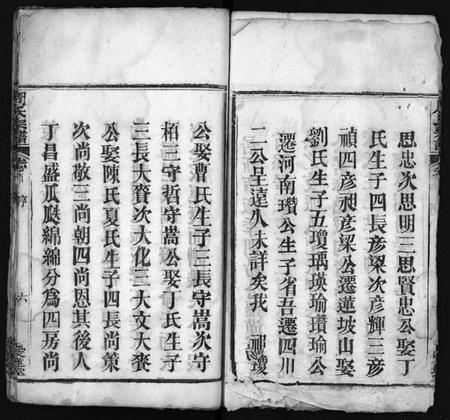 思忠次思明三思賢忠公娶丁
氏生子四長彥梁次彥輝三彥
禎四彥昶彥梁公遷蓮坡山娶
劉氏生子五瓊瑀瑛瑜瓚瑜公
遷河南瓚公生子省吾遷四川
二公呈遠久未詳矣我 祖瓊
公娶曹氏生子三長守嵩次守
栢三守哲守嵩公娶丁氏生子
三長大賚次大化三大文大賚
公娶陳氏夏氏生子四長尚策
次尚敬三尚朝四尚恩其後人
丁昌盛瓜瓞綿綿分爲四房尚
氏宗譜
六